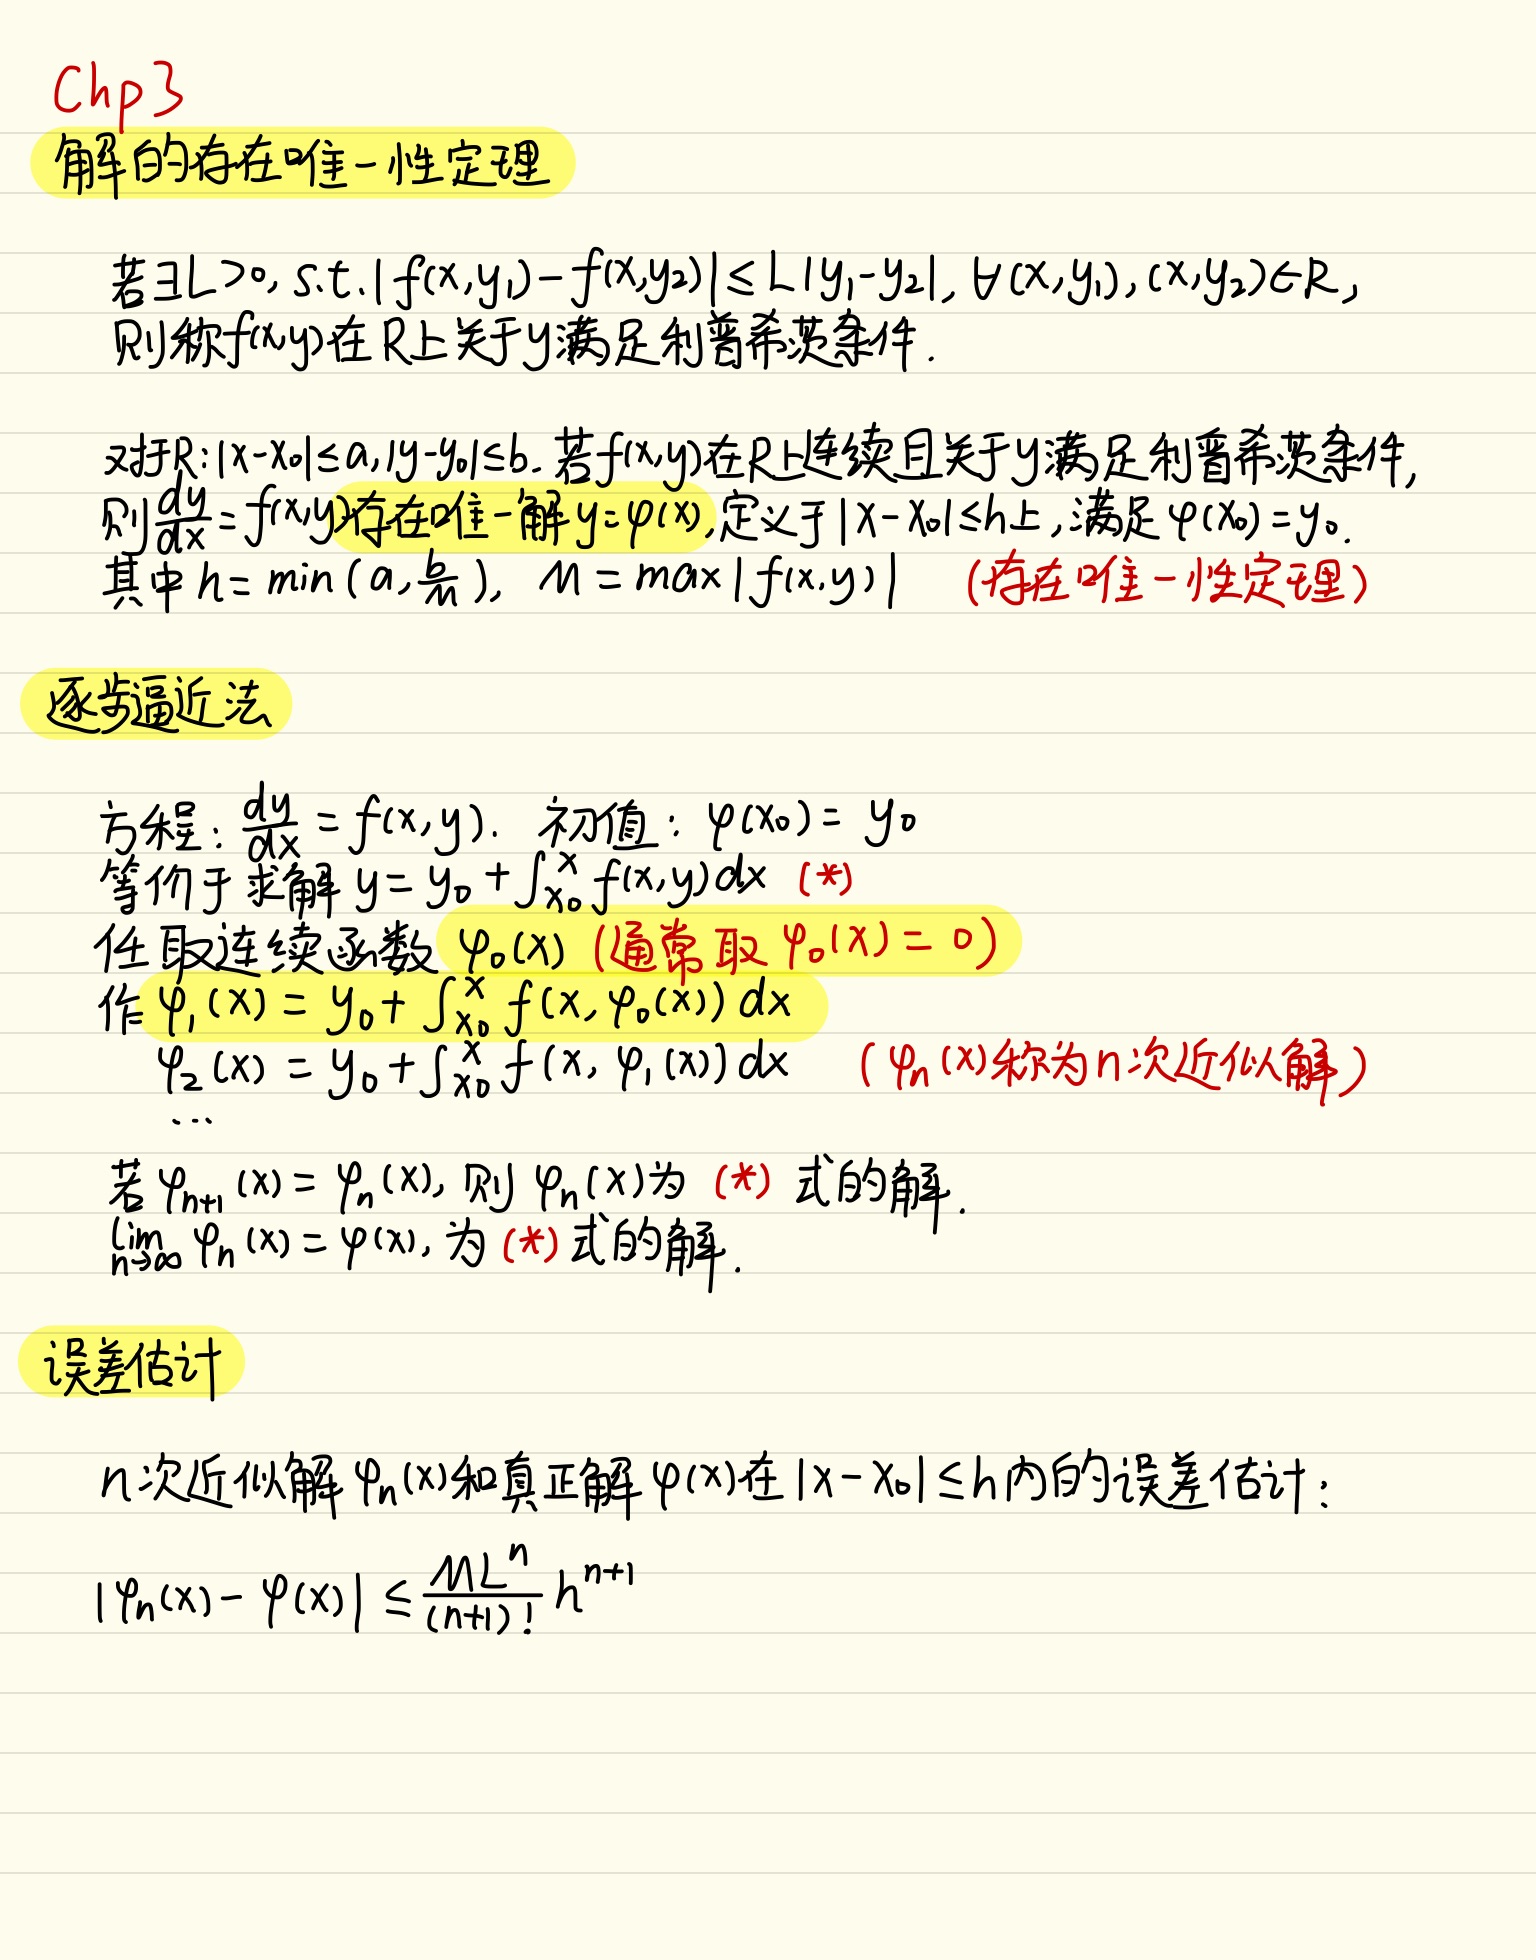 Chp 3
解的存在唯一性定理
若∃L>0, s.t. |f(x,y₁)-f(x,y₂)|≤L|y₁-y₂|, ∀(x,y₁),(x,y₂)∈R,
则称f(x,y)在R上关于y满足利普希茨条件.
对于R:|x-x₀|≤a,|y-y₀|≤b. 若f(x,y)在R上连续且关于y满足利普希茨条件,
则dy/dx=f(x,y)存在唯一解y=φ(x),定义于|x-x₀|≤h上,满足φ(x₀)=y₀.
其中h=min(a,b/M), M=max|f(x,y)| (存在唯一性定理)
逐步逼近法
方程: dy/dx=f(x,y). 初值: φ(x₀)=y₀
等价于求解y=y₀+∫ₓ₀ˣf(x,y)dx (*)
任取连续函数φ₀(x) (通常取φ₀(x)=0)
作φ₁(x)=y₀+∫ₓ₀ˣf(x,φ₀(x))dx
φ₂(x)=y₀+∫ₓ₀ˣf(x,φ₁(x))dx (φₙ(x)称为n次近似解)
...
若φₙ₊₁(x)=φₙ(x), 则φₙ(x)为 (*) 式的解.
lim n→∞ φₙ(x)=φ(x), 为(*)式的解.
误差估计
n次近似解φₙ(x)和真正解φ(x)在|x-x₀|≤h内的误差估计:
|φₙ(x)-φ(x)|≤MLⁿ/(n+1)! hⁿ⁺¹